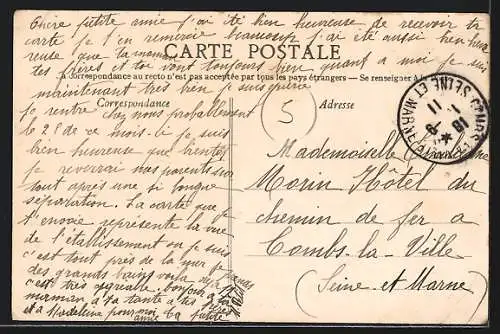 Chère petite amie j'ai été bien heureuse de recevoir ta
carte je t'en remercie beaucoup j'ai été aussi bien heu
reuse que ta maman
CARTE POSTALE
des frères et toi vont toujours bien quant a moi je suis
La Correspondance au recto n'est pas acceptée par tous les pays étrangers — Se renseigner à la
maintenant très bien je suis guérie
Correspondance
Adresse
5
je rentre chez nous probablement
le 28 de ce mois-ci je suis
bien heureuse que bientôt
je reverrai nos parents sur
tout après une si longue
séparation. La carte que je
t'envoie représente la vue
de l'établissement où je suis
c'est tout près de la mer je prends
des grands bains voila
c'est très agréable. bonjour a ta
maman a ta tante a tes frères
et a Madeleine pour moi
amie
Mademoiselle
Morin Hôtel du
chemin de fer a
Combs-la-Ville
(Seine-et-Marne)
COMBS-LA-VILLE
SEINE ET MARNE